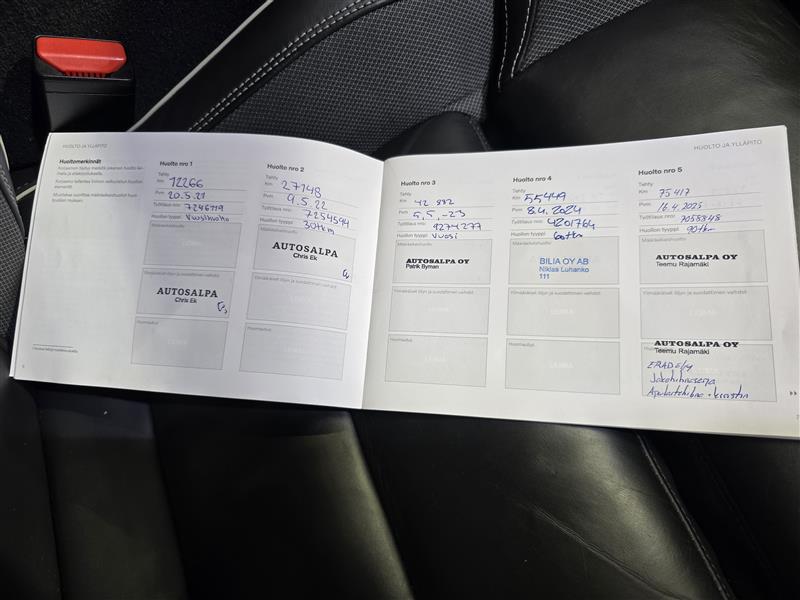 HUOLTO JA YLLÄPITO
Huoltomerkinnät
Huolto nro 1
Tehty
Km 12266
Pvm 20.5.21
Työtilaus nro: 7246719
Huollon tyyppi: Vuosihuolto
Määräaikaishuolto
LEIMA
AUTOSALPA
Chris Ek
Huomautus
LEIMA
Huolto nro 2
Tehty
Km 27148
Pvm 9.5.22
Työtilaus nro: 7254594
Huollon tyyppi: 30tkm
Määräaikaishuolto
AUTOSALPA
Chris Ek
Ylimääräiset öljyn ja suodattimen vaihdot
LEIMA
Huomautus
LEIMA
HUOLTO JA YLLÄPITO
Huolto nro 3
Tehty
Km 42 882
Pvm 5.5.-23
Työtilaus nro: 9274277
Huollon tyyppi: Vuosi
Määräaikaishuolto
AUTOSALPA OY
Patrik Byman
Ylimääräiset öljyn ja suodattimen vaihdot
LEIMA
Huomautus
LEIMA
Huolto nro 4
Tehty
Km 55449
Pvm 8.4.2024
Työtilaus nro: 4201764
Huollon tyyppi: 60tkm
Määräaikaishuolto
BILIA OY AB
Niklas Luhanko
111
Ylimääräiset öljyn ja suodattimen vaihdot
LEIMA
Huomautus
LEIMA
Huolto nro 5
Tehty
Km 75417
Pvm 16.4.2025
Työtilaus nro: 7058848
Huollon tyyppi: 90tkm
Määräaikaishuolto
AUTOSALPA OY
Teemu Rajamäki
Ylimääräiset öljyn ja suodattimen vaihdot
LEIMA
AUTOSALPA OY
Teemu Rajamäki
Jakohihnasarja